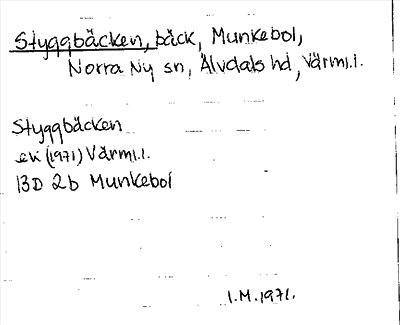 Styggbäcken, bäck, Munkebol,
Norra Ny sn, Älvdals hd, Värml.l.
Styggbäcken
ek (1971) Värml.l.
13D 2b Munkebol
I.M.1971.